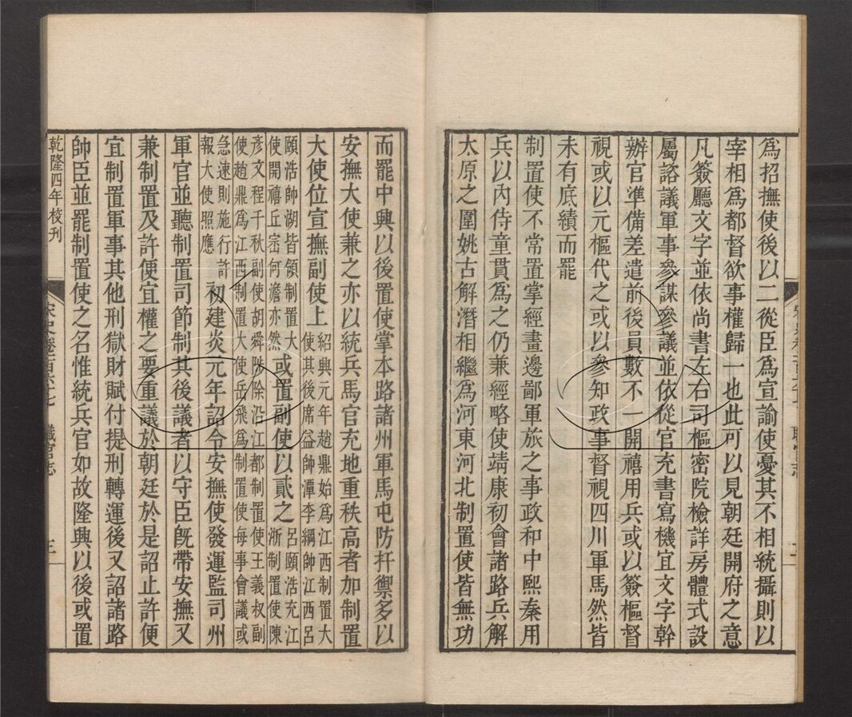 爲招撫使後以二從臣爲宣諭使憂其不相統攝則以
宰相爲都督欲事權歸一也此可以見朝廷開府之意
凡簽廳文字並依尚書左右司樞密院檢詳房體式設
屬諮議軍事參謀參議並依從官充書寫機宜文字幹
辦官準備差遣前後員數不一開禧用兵或以簽樞督
視或以元樞代之或以參知政事督視四川軍馬然皆
未有底績而罷
制置使不常置掌經畫邊鄙軍旅之事政和中熙秦用
兵以內侍童貫爲之仍兼經略使靖康初會諸路兵解
太原之圍姚古解潛相繼爲河東河北制置使皆無功
而罷中興以後置使掌本路諸州軍馬屯防扞禦多以
安撫大使兼之亦以統兵馬官充地重秩高者加制置
大使位宣撫副使上
紹興元年趙鼎始爲江西制置大
使其後席益帥潭李綱帥江西呂
頤浩帥湖皆領制置大
使開禧丘崈何澹亦然
或置副使以貳之
呂頤浩充江
浙制置使陳
彥文程千秋副使胡舜陟除沿江都制置使王義叔副
使趙鼎爲江西制置大使岳飛爲制置使每事會議或
急速則施行許
報大使照應
初建炎元年詔令安撫使發運監司州
軍官並聽制置司節制其後議者以守臣旣帶安撫又
兼制置及許便宜權之要重議於朝廷於是詔止許便
宜制置軍事其他刑獄財賦付提刑轉運後又詔諸路
帥臣並罷制置使之名惟統兵官如故隆興以後或置
乾隆四年校刊
職官志
三